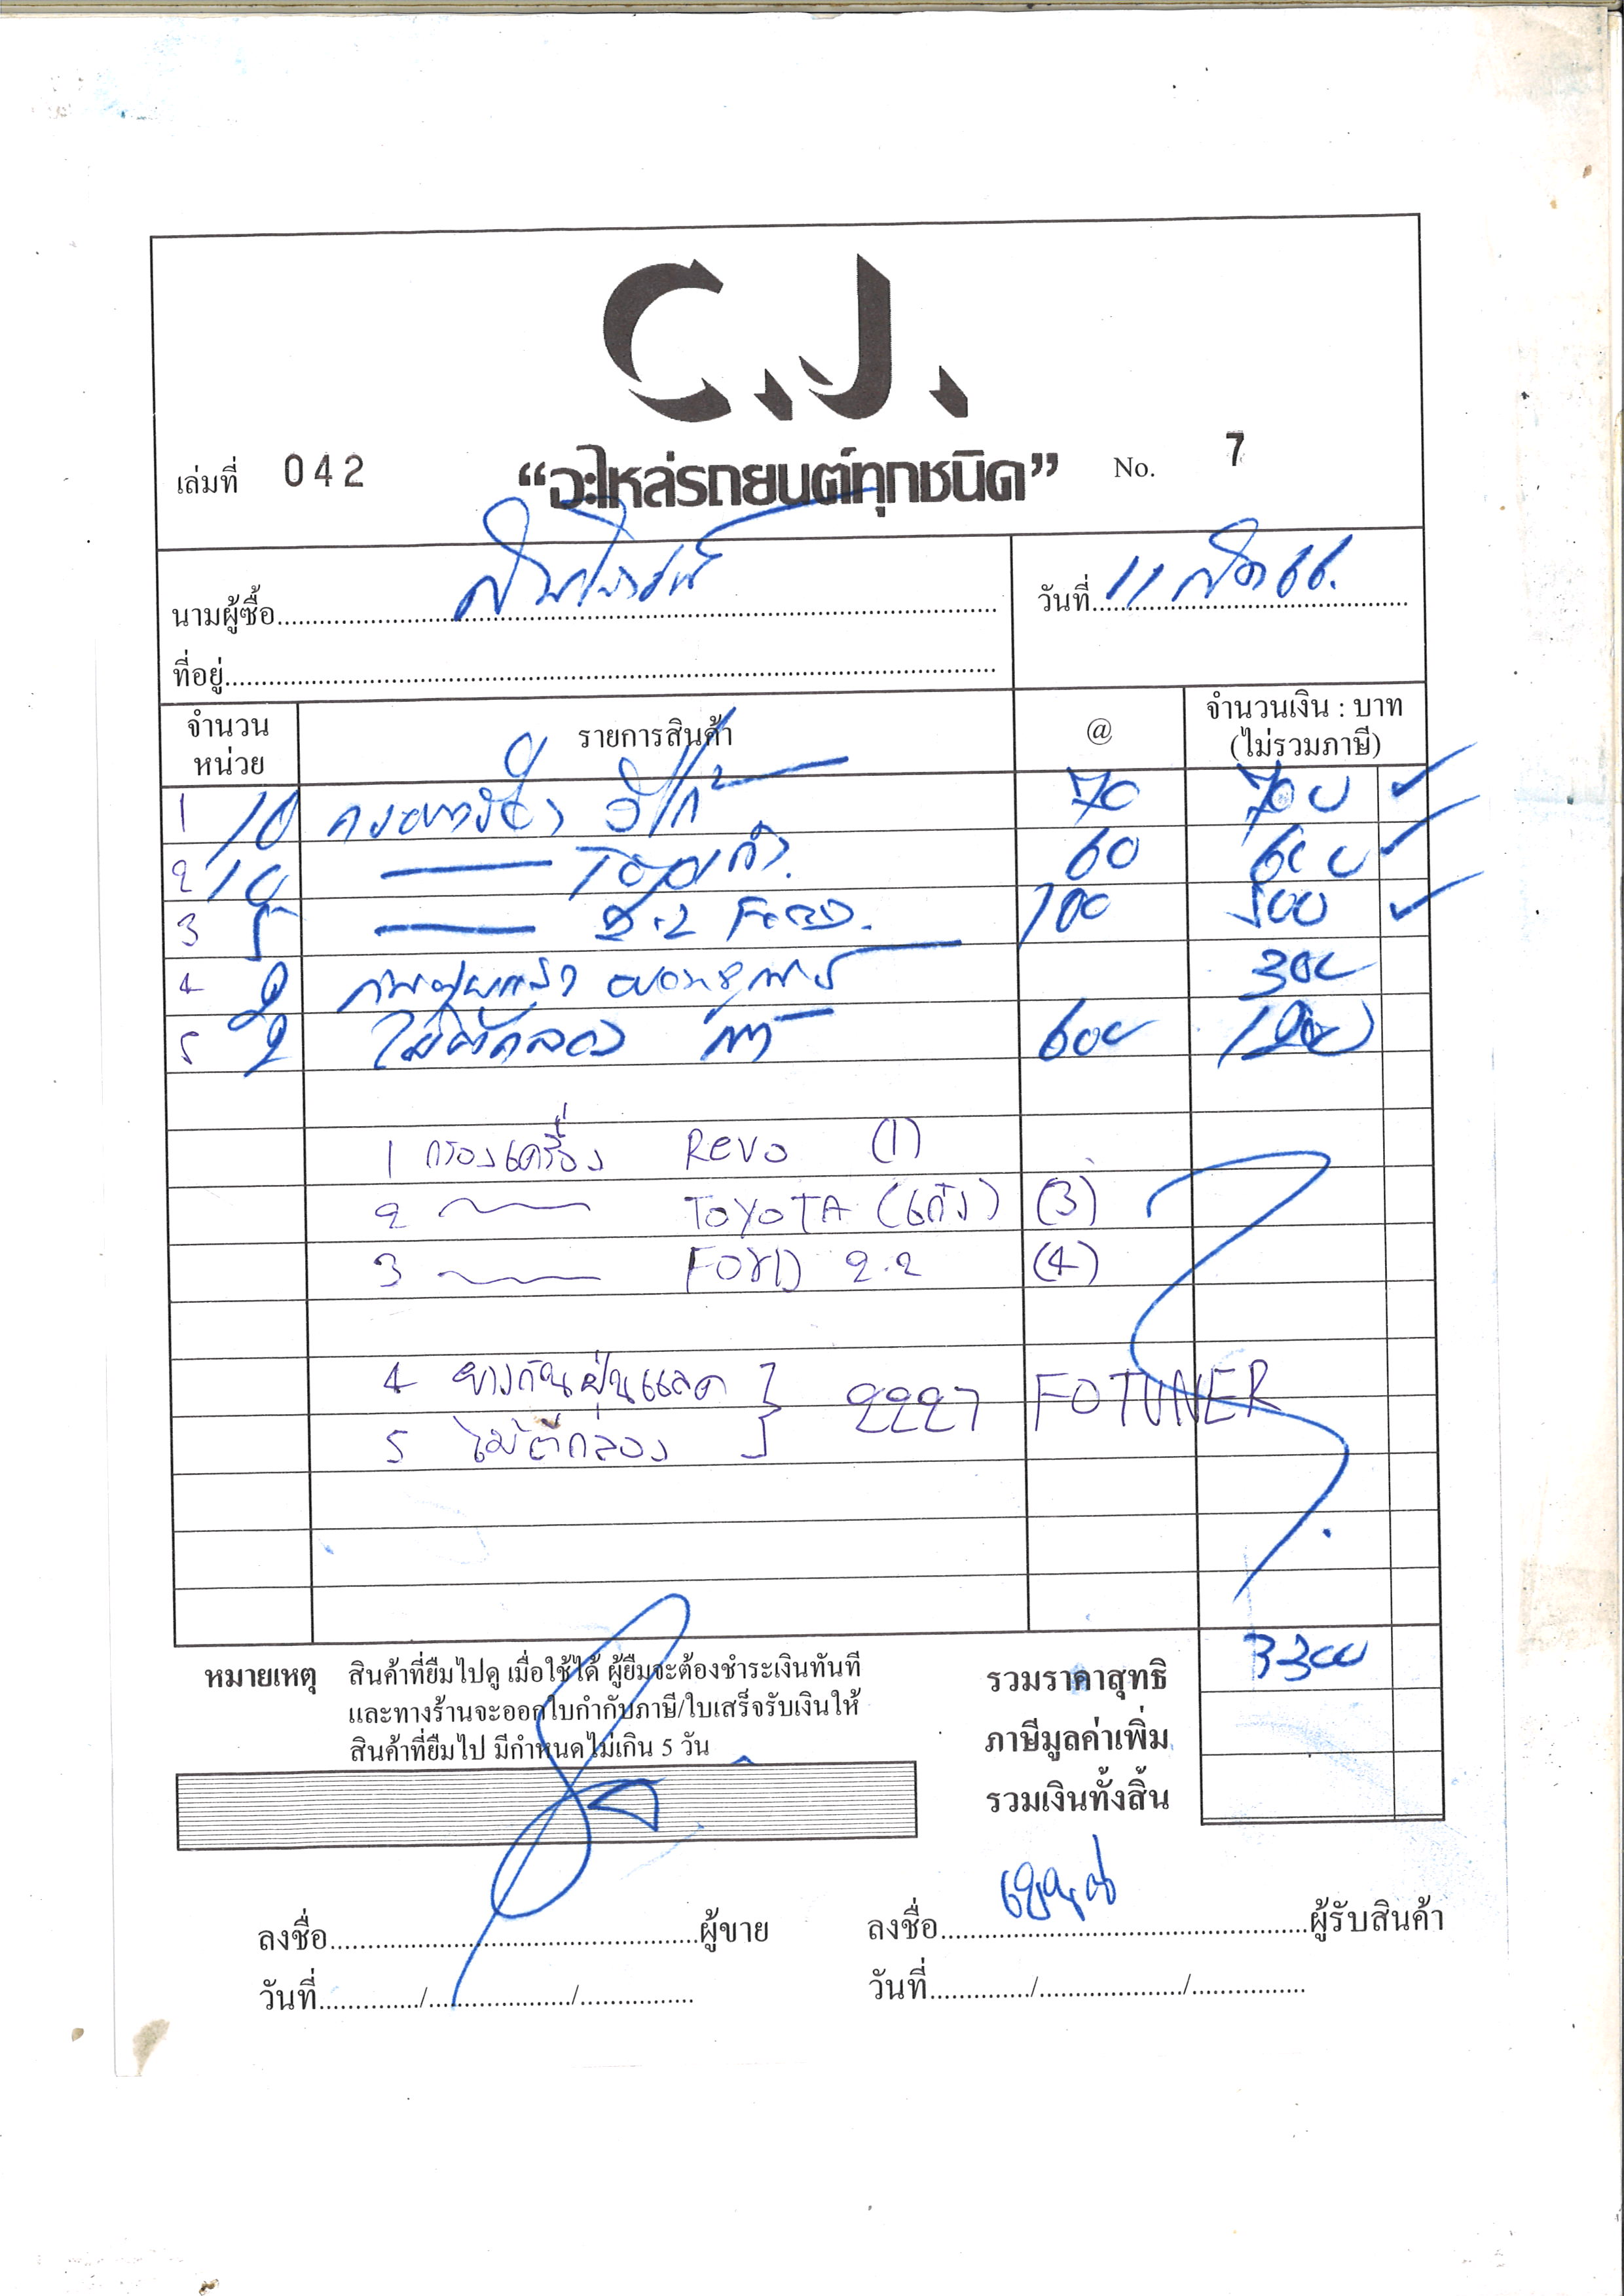 C.J.
เล่มที่ 042 “อะไหล่รถยนต์ทุกชนิด” No. 7
นามผู้ซื้อ วันที่ 11 66.
ที่อยู่
จำนวนหน่วย รายการสินค้า @ จำนวนเงิน : บาท (ไม่รวมภาษี)
1 10 70 700
2 10 60 600
3 5 2.2 Ford. 100 500
4 2 300
5 2 ไม้ตีกลอง 600 1200
1 กรองเครื่อง Revo (1)
2 TOYOTA (เก๋ง) (3)
3 FORD 2.2 (4)
4 ยางกันฝุ่นแลค } 2227 FOTUNER
5 ไม้ตีกลอง
หมายเหตุ สินค้าที่ยืมไปดู เมื่อใช้ได้ ผู้ยืมจะต้องชำระเงินทันที
และทางร้านจะออกใบกำกับภาษี/ใบเสร็จรับเงินให้
สินค้าที่ยืมไป มีกำหนดไม่เกิน 5 วัน
รวมราคาสุทธิ 3300
ภาษีมูลค่าเพิ่ม
รวมเงินทั้งสิ้น
ลงชื่อ ผู้ขาย ลงชื่อ ผู้รับสินค้า
วันที่ / / วันที่ / /